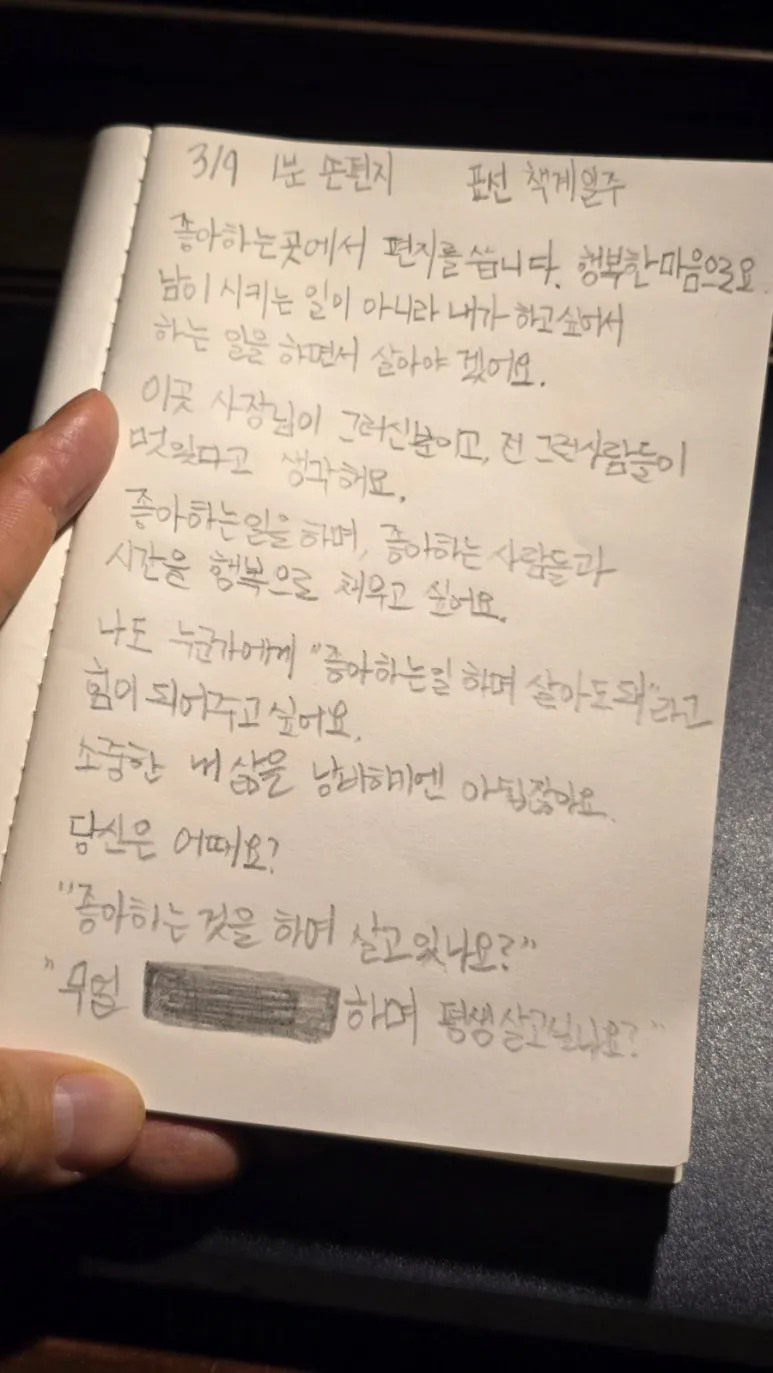 3/9 1분 손편지 표선 책계일주
좋아하는곳에서 편지를 씁니다. 행복한마음으로요.
남이 시키는 일이 아니라 내가 하고싶어서
하는 일을 하면서 살아야 겠어요.
이곳 사장님이 그러신분이고, 전 그런사람들이
멋있다고 생각해요.
좋아하는일을 하며, 좋아하는 사람들과
시간을 행복으로 채우고 싶어요.
나도 누군가에게 "좋아하는일 하며 살아도돼"라고
힘이 되어주고싶어요.
소중한 내 삶을 낭비하기엔 아쉽잖아요.
당신은 어때요?
"좋아하는 것을 하며 살고있나요?"
"무얼 하며 평생살고싶나요?"